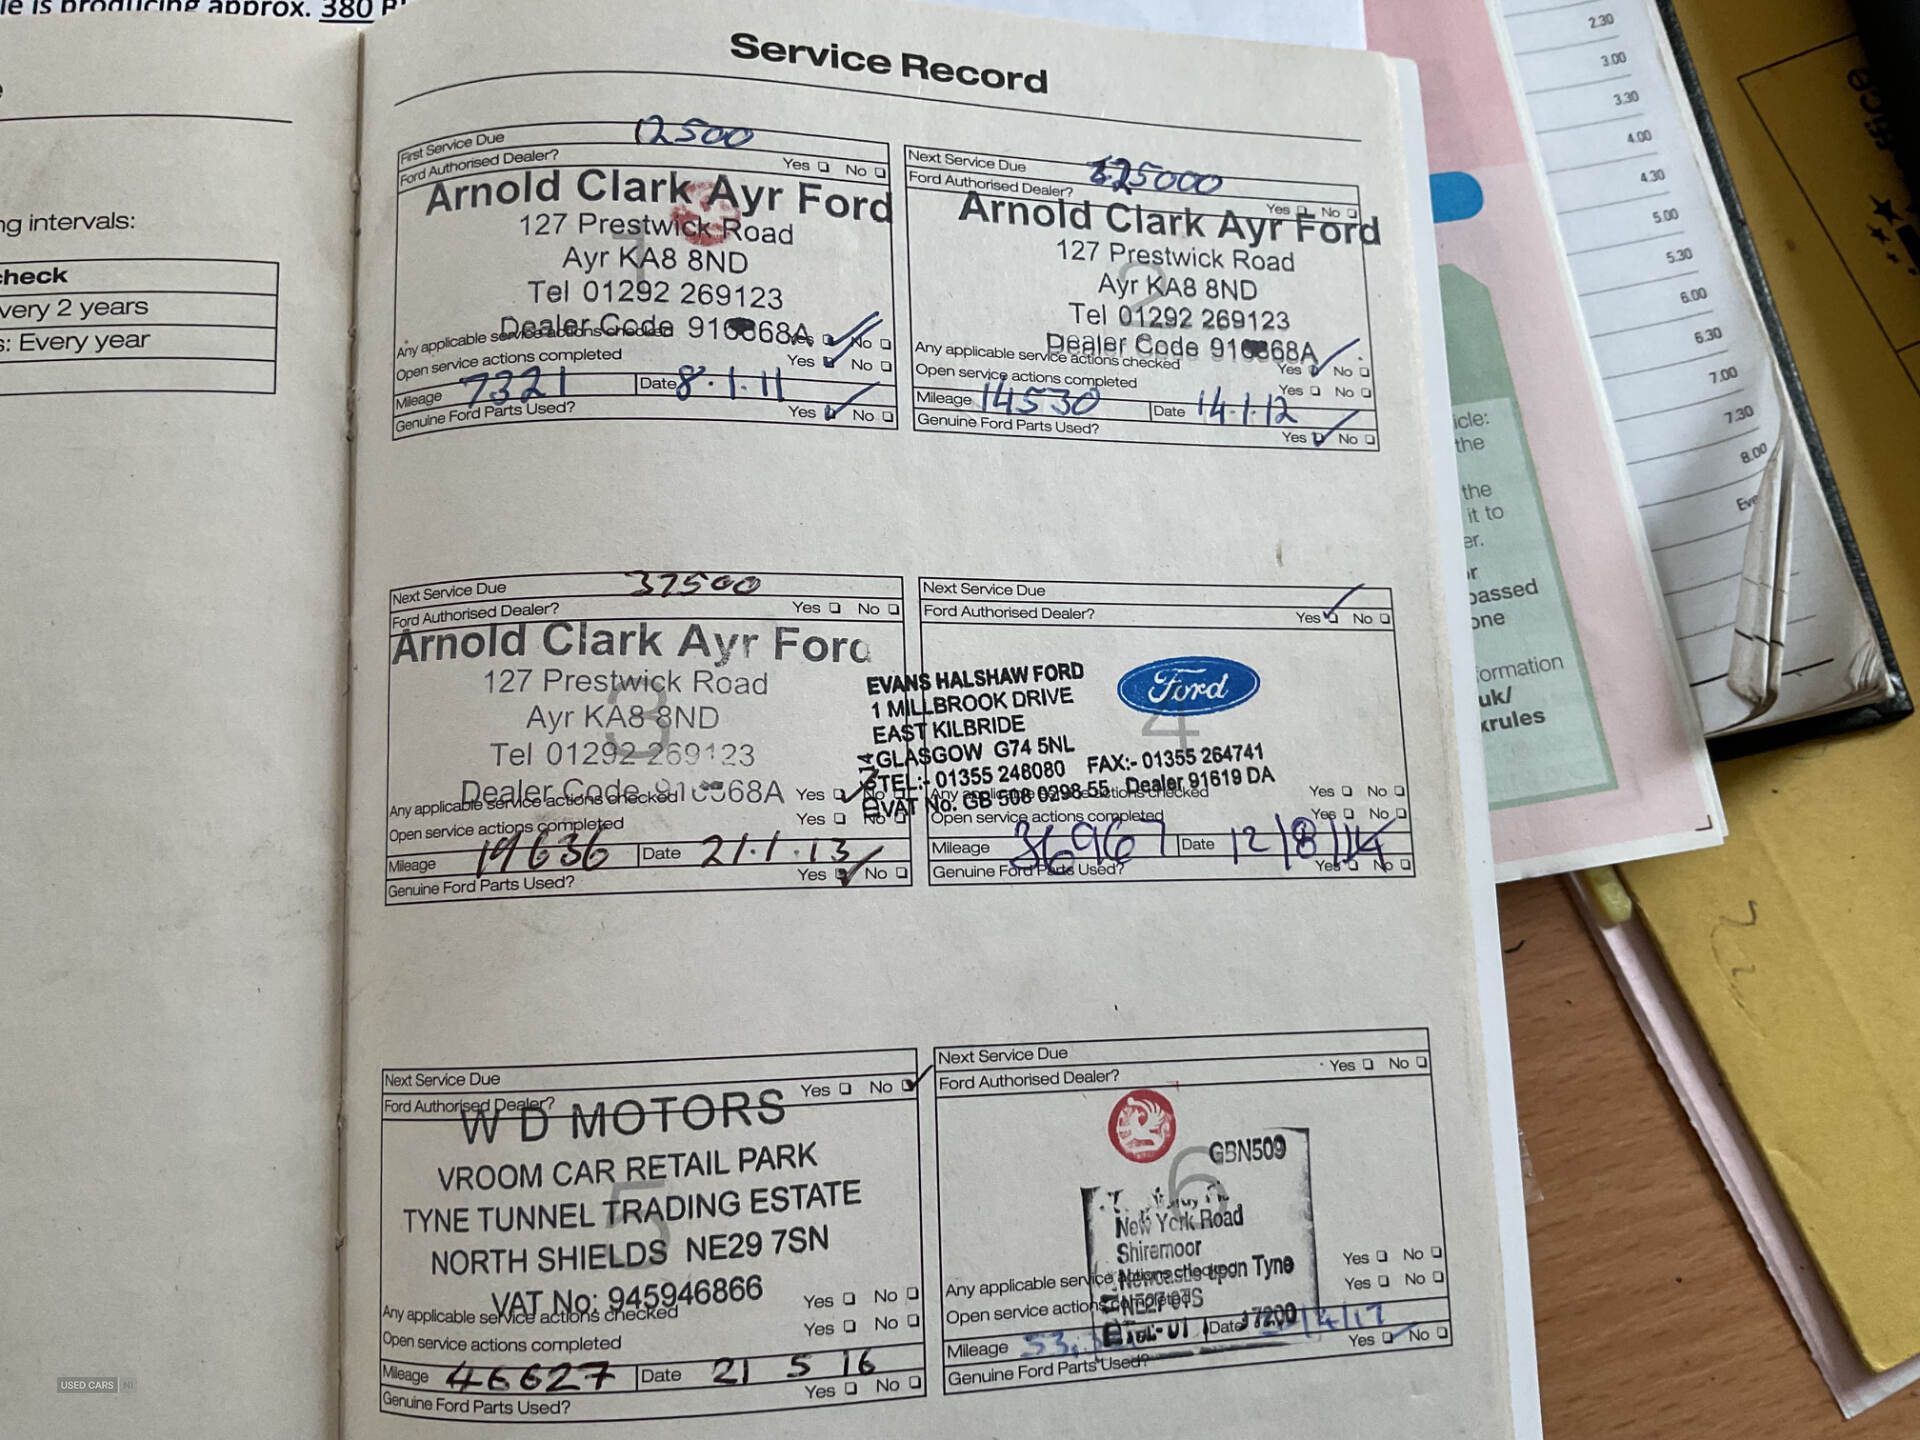 le is producing approx. 380
ng intervals:
check
very 2 years
s: Every year
Service Record
First Service Due 12500
Ford Authorised Dealer? Yes No
Arnold Clark Ayr Ford
127 Prestwick Road
1
Ayr KA8 8ND
Tel 01292 269123
Dealer Code 910868A
Any applicable service actions checked Yes No
Open service actions completed Yes No
Mileage 7321 Date 8.1.11
Genuine Ford Parts Used? Yes No
Next Service Due 25000
Ford Authorised Dealer? Yes No
Arnold Clark Ayr Ford
127 Prestwick Road
2
Ayr KA8 8ND
Tel 01292 269123
Dealer Code 910868A
Any applicable service actions checked Yes No
Open service actions completed Yes No
Mileage 14530 Date 14.1.12
Genuine Ford Parts Used? Yes No
Next Service Due 37500
Ford Authorised Dealer? Yes No
Arnold Clark Ayr Ford
127 Prestwick Road
3
Ayr KA8 8ND
Tel 01292 269123
Dealer Code 910868A
Any applicable service actions checked Yes No
Open service actions completed Yes No
Mileage 19636 Date 21.1.13
Genuine Ford Parts Used? Yes No
Next Service Due
Ford Authorised Dealer? Yes No
EVANS HALSHAW FORD
1 MILLBROOK DRIVE
EAST KILBRIDE
GLASGOW G74 5NL
TEL:- 01355 248080 FAX:- 01355 264741
VAT No: GB 508 0298 55 Dealer 91619 DA
Ford
4
Any applicable service actions checked Yes No
Open service actions completed Yes No
Mileage 36967 Date 12/8/14
Genuine Ford Parts Used? Yes No
Next Service Due
Ford Authorised Dealer? Yes No
W D MOTORS
VROOM CAR RETAIL PARK
TYNE TUNNEL TRADING ESTATE
5
NORTH SHIELDS NE29 7SN
VAT No: 945946866
Any applicable service actions checked Yes No
Open service actions completed Yes No
Mileage 46627 Date 21 5 16
Genuine Ford Parts Used? Yes No
Next Service Due
Ford Authorised Dealer? Yes No
GBN509
6
New York Road
Shiremoor
Newcastle upon Tyne
Any applicable service actions checked Yes No
Open service actions completed Yes No
Mileage 53, Date /4/17
Genuine Ford Parts Used? Yes No
2.30
3.00
3.30
4.00
4.30
5.00
5.30
6.00
6.30
7.00
7.30
8.00
Eve
icle:
the
the
it to
er.
r
passed
one
formation
uk/
krules
USED CARS NI